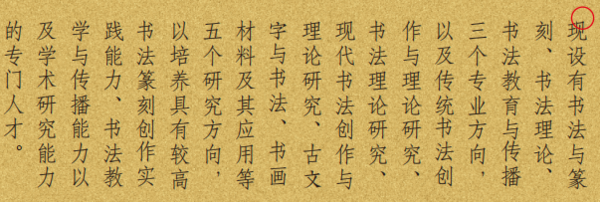 现设有书法与篆
刻、书法理论、
书法教育与传播
三个专业方向，
以及传统书法创
作与理论研究、
书法理论研究、
现代书法创作与
理论研究、古文
字与书法、书画
材料及其应用等
五个研究方向，
以培养具有较高
书法篆刻创作实
践能力、书法教
学与传播能力以
及学术研究能力
的专门人才。